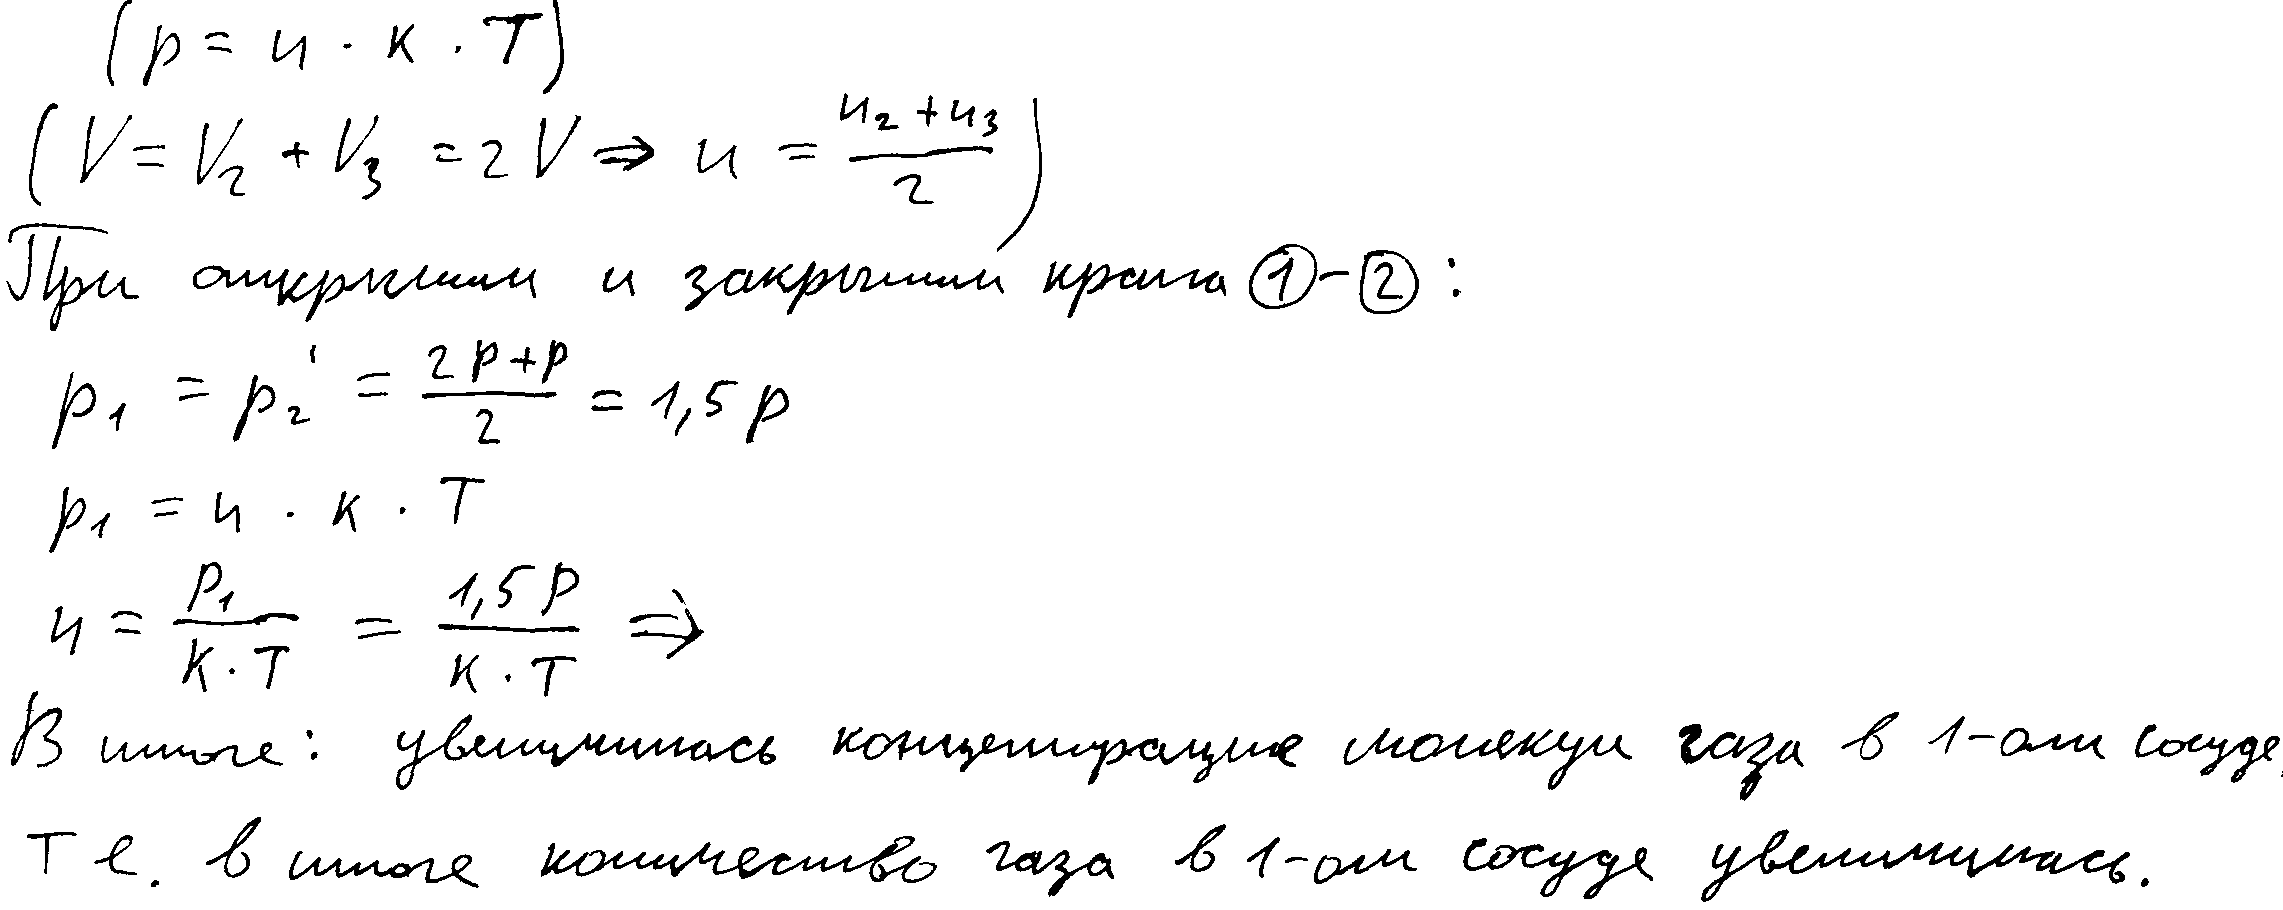 (p = n · k · T)
(V = V₂ + V₃ = 2V ⇒ n = (n₂ + n₃)/2)
При открытии и закрытии крана ①-②:
p₁ = p₂' = (2p + p)/2 = 1,5p
p₁ = n · k · T
n = p₁/(k · T) = 1,5p/(k · T) ⇒
В итоге: увеличилась концентрация молекул газа в 1-ом сосуде,
т е. в итоге количество газа в 1-ом сосуде увеличилась.